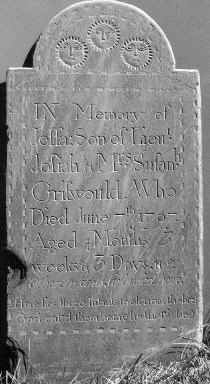 IN Memory of
Son of Lieut
Josiah & Mrs Susanh
Griswould. Who
Died June 7th
Aged 4 Months 3
weeks & 3 Days. & 2
Others
Here lies three Infants
God call'd them home he tho't it best